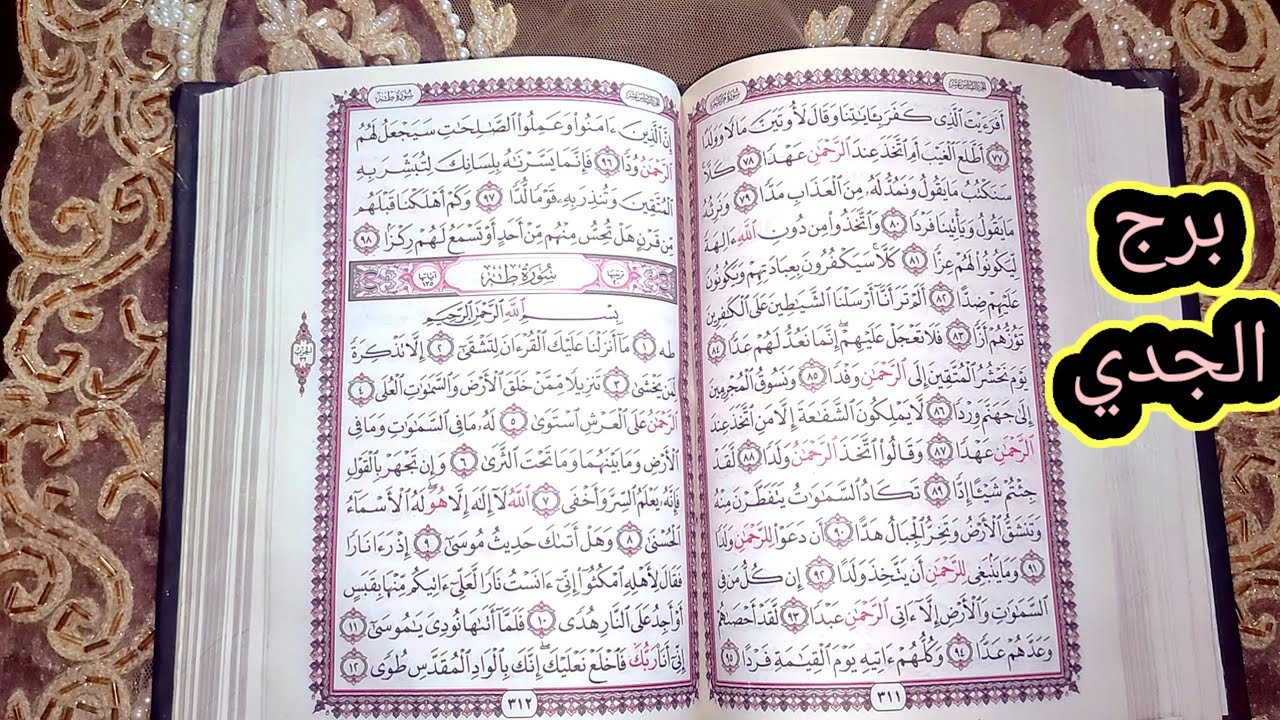 سورة مريم
الجزء السادس عشر
أَفَرَءَيْتَ ٱلَّذِى كَفَرَ بِـَٔايَـٰتِنَا وَقَالَ لَأُوتَيَنَّ مَالًا وَوَلَدًا
٧٧ أَطَّلَعَ ٱلْغَيْبَ أَمِ ٱتَّخَذَ عِندَ ٱلرَّحْمَـٰنِ عَهْدًا ٧٨ كَلَّا
سَنَكْتُبُ مَا يَقُولُ وَنَمُدُّ لَهُۥ مِنَ ٱلْعَذَابِ مَدًّا ٧٩ وَنَرِثُهُۥ
مَا يَقُولُ وَيَأْتِينَا فَرْدًا ٨٠ وَٱتَّخَذُوا۟ مِن دُونِ ٱللَّهِ ءَالِهَةً
لِّيَكُونُوا۟ لَهُمْ عِزًّا ٨١ كَلَّا ۚ سَيَكْفُرُونَ بِعِبَادَتِهِمْ وَيَكُونُونَ
عَلَيْهِمْ ضِدًّا ٨٢ أَلَمْ تَرَ أَنَّآ أَرْسَلْنَا ٱلشَّيَـٰطِينَ عَلَى ٱلْكَـٰفِرِينَ
تَؤُزُّهُمْ أَزًّا ٨٣ فَلَا تَعْجَلْ عَلَيْهِمْ ۖ إِنَّمَا نَعُدُّ لَهُمْ عَدًّا ٨٤
يَوْمَ نَحْشُرُ ٱلْمُتَّقِينَ إِلَى ٱلرَّحْمَـٰنِ وَفْدًا ٨٥ وَنَسُوقُ ٱلْمُجْرِمِينَ
إِلَىٰ جَهَنَّمَ وِرْدًا ٨٦ لَّا يَمْلِكُونَ ٱلشَّفَـٰعَةَ إِلَّا مَنِ ٱتَّخَذَ عِندَ
ٱلرَّحْمَـٰنِ عَهْدًا ٨٧ وَقَالُوا۟ ٱتَّخَذَ ٱلرَّحْمَـٰنُ وَلَدًا ٨٨ لَّقَدْ
جِئْتُمْ شَيْـًٔا إِدًّا ٨٩ تَكَادُ ٱلسَّمَـٰوَٰتُ يَتَفَطَّرْنَ مِنْهُ
وَتَنشَقُّ ٱلْأَرْضُ وَتَخِرُّ ٱلْجِبَالُ هَدًّا ٩٠ أَن دَعَوْا۟ لِلرَّحْمَـٰنِ وَلَدًا
٩١ وَمَا يَنۢبَغِى لِلرَّحْمَـٰنِ أَن يَتَّخِذَ وَلَدًا ٩٢ إِن كُلُّ مَن فِى
ٱلسَّمَـٰوَٰتِ وَٱلْأَرْضِ إِلَّآ ءَاتِى ٱلرَّحْمَـٰنِ عَبْدًا ٩٣ لَّقَدْ أَحْصَىٰهُمْ
وَعَدَّهُمْ عَدًّا ٩٤ وَكُلُّهُمْ ءَاتِيهِ يَوْمَ ٱلْقِيَـٰمَةِ فَرْدًا ٩٥
٣١١
الجزء السادس عشر
سورة طه
إِنَّ ٱلَّذِينَ ءَامَنُوا۟ وَعَمِلُوا۟ ٱلصَّـٰلِحَـٰتِ سَيَجْعَلُ لَهُمُ
ٱلرَّحْمَـٰنُ وُدًّا ٩٦ فَإِنَّمَا يَسَّرْنَـٰهُ بِلِسَانِكَ لِتُبَشِّرَ بِهِ
ٱلْمُتَّقِينَ وَتُنذِرَ بِهِۦ قَوْمًا لُّدًّا ٩٧ وَكَمْ أَهْلَكْنَا قَبْلَهُم
مِّن قَرْنٍ هَلْ تُحِسُّ مِنْهُم مِّنْ أَحَدٍ أَوْ تَسْمَعُ لَهُمْ رِكْزًۢا ٩٨
ترتيبها ٢٠ سُورَةُ طه آياتها ١٣٥
بِسْمِ ٱللَّهِ ٱلرَّحْمَـٰنِ ٱلرَّحِيمِ
طه ١ مَآ أَنزَلْنَا عَلَيْكَ ٱلْقُرْءَانَ لِتَشْقَىٰٓ ٢ إِلَّا تَذْكِرَةً
لِّمَن يَخْشَىٰ ٣ تَنزِيلًا مِّمَّنْ خَلَقَ ٱلْأَرْضَ وَٱلسَّمَـٰوَٰتِ ٱلْعُلَى ٤
ٱلرَّحْمَـٰنُ عَلَى ٱلْعَرْشِ ٱسْتَوَىٰ ٥ لَهُۥ مَا فِى ٱلسَّمَـٰوَٰتِ وَمَا فِى
ٱلْأَرْضِ وَمَا بَيْنَهُمَا وَمَا تَحْتَ ٱلثَّرَىٰ ٦ وَإِن تَجْهَرْ بِٱلْقَوْلِ
فَإِنَّهُۥ يَعْلَمُ ٱلسِّرَّ وَأَخْفَى ٧ ٱللَّهُ لَآ إِلَـٰهَ إِلَّا هُوَ ۖ لَهُ ٱلْأَسْمَآءُ
ٱلْحُسْنَىٰ ٨ وَهَلْ أَتَىٰكَ حَدِيثُ مُوسَىٰٓ ٩ إِذْ رَءَا نَارًا
فَقَالَ لِأَهْلِهِ ٱمْكُثُوٓا۟ إِنِّىٓ ءَانَسْتُ نَارًا لَّعَلِّىٓ ءَاتِيكُم مِّنْهَا بِقَبَسٍ
أَوْ أَجِدُ عَلَى ٱلنَّارِ هُدًى ١٠ فَلَمَّآ أَتَىٰهَا نُودِىَ يَـٰمُوسَىٰٓ ١١
إِنِّىٓ أَنَا۠ رَبُّكَ فَٱخْلَعْ نَعْلَيْكَ ۖ إِنَّكَ بِٱلْوَادِ ٱلْمُقَدَّسِ طُوًى ١٢
٣١٢
برج
الجدي